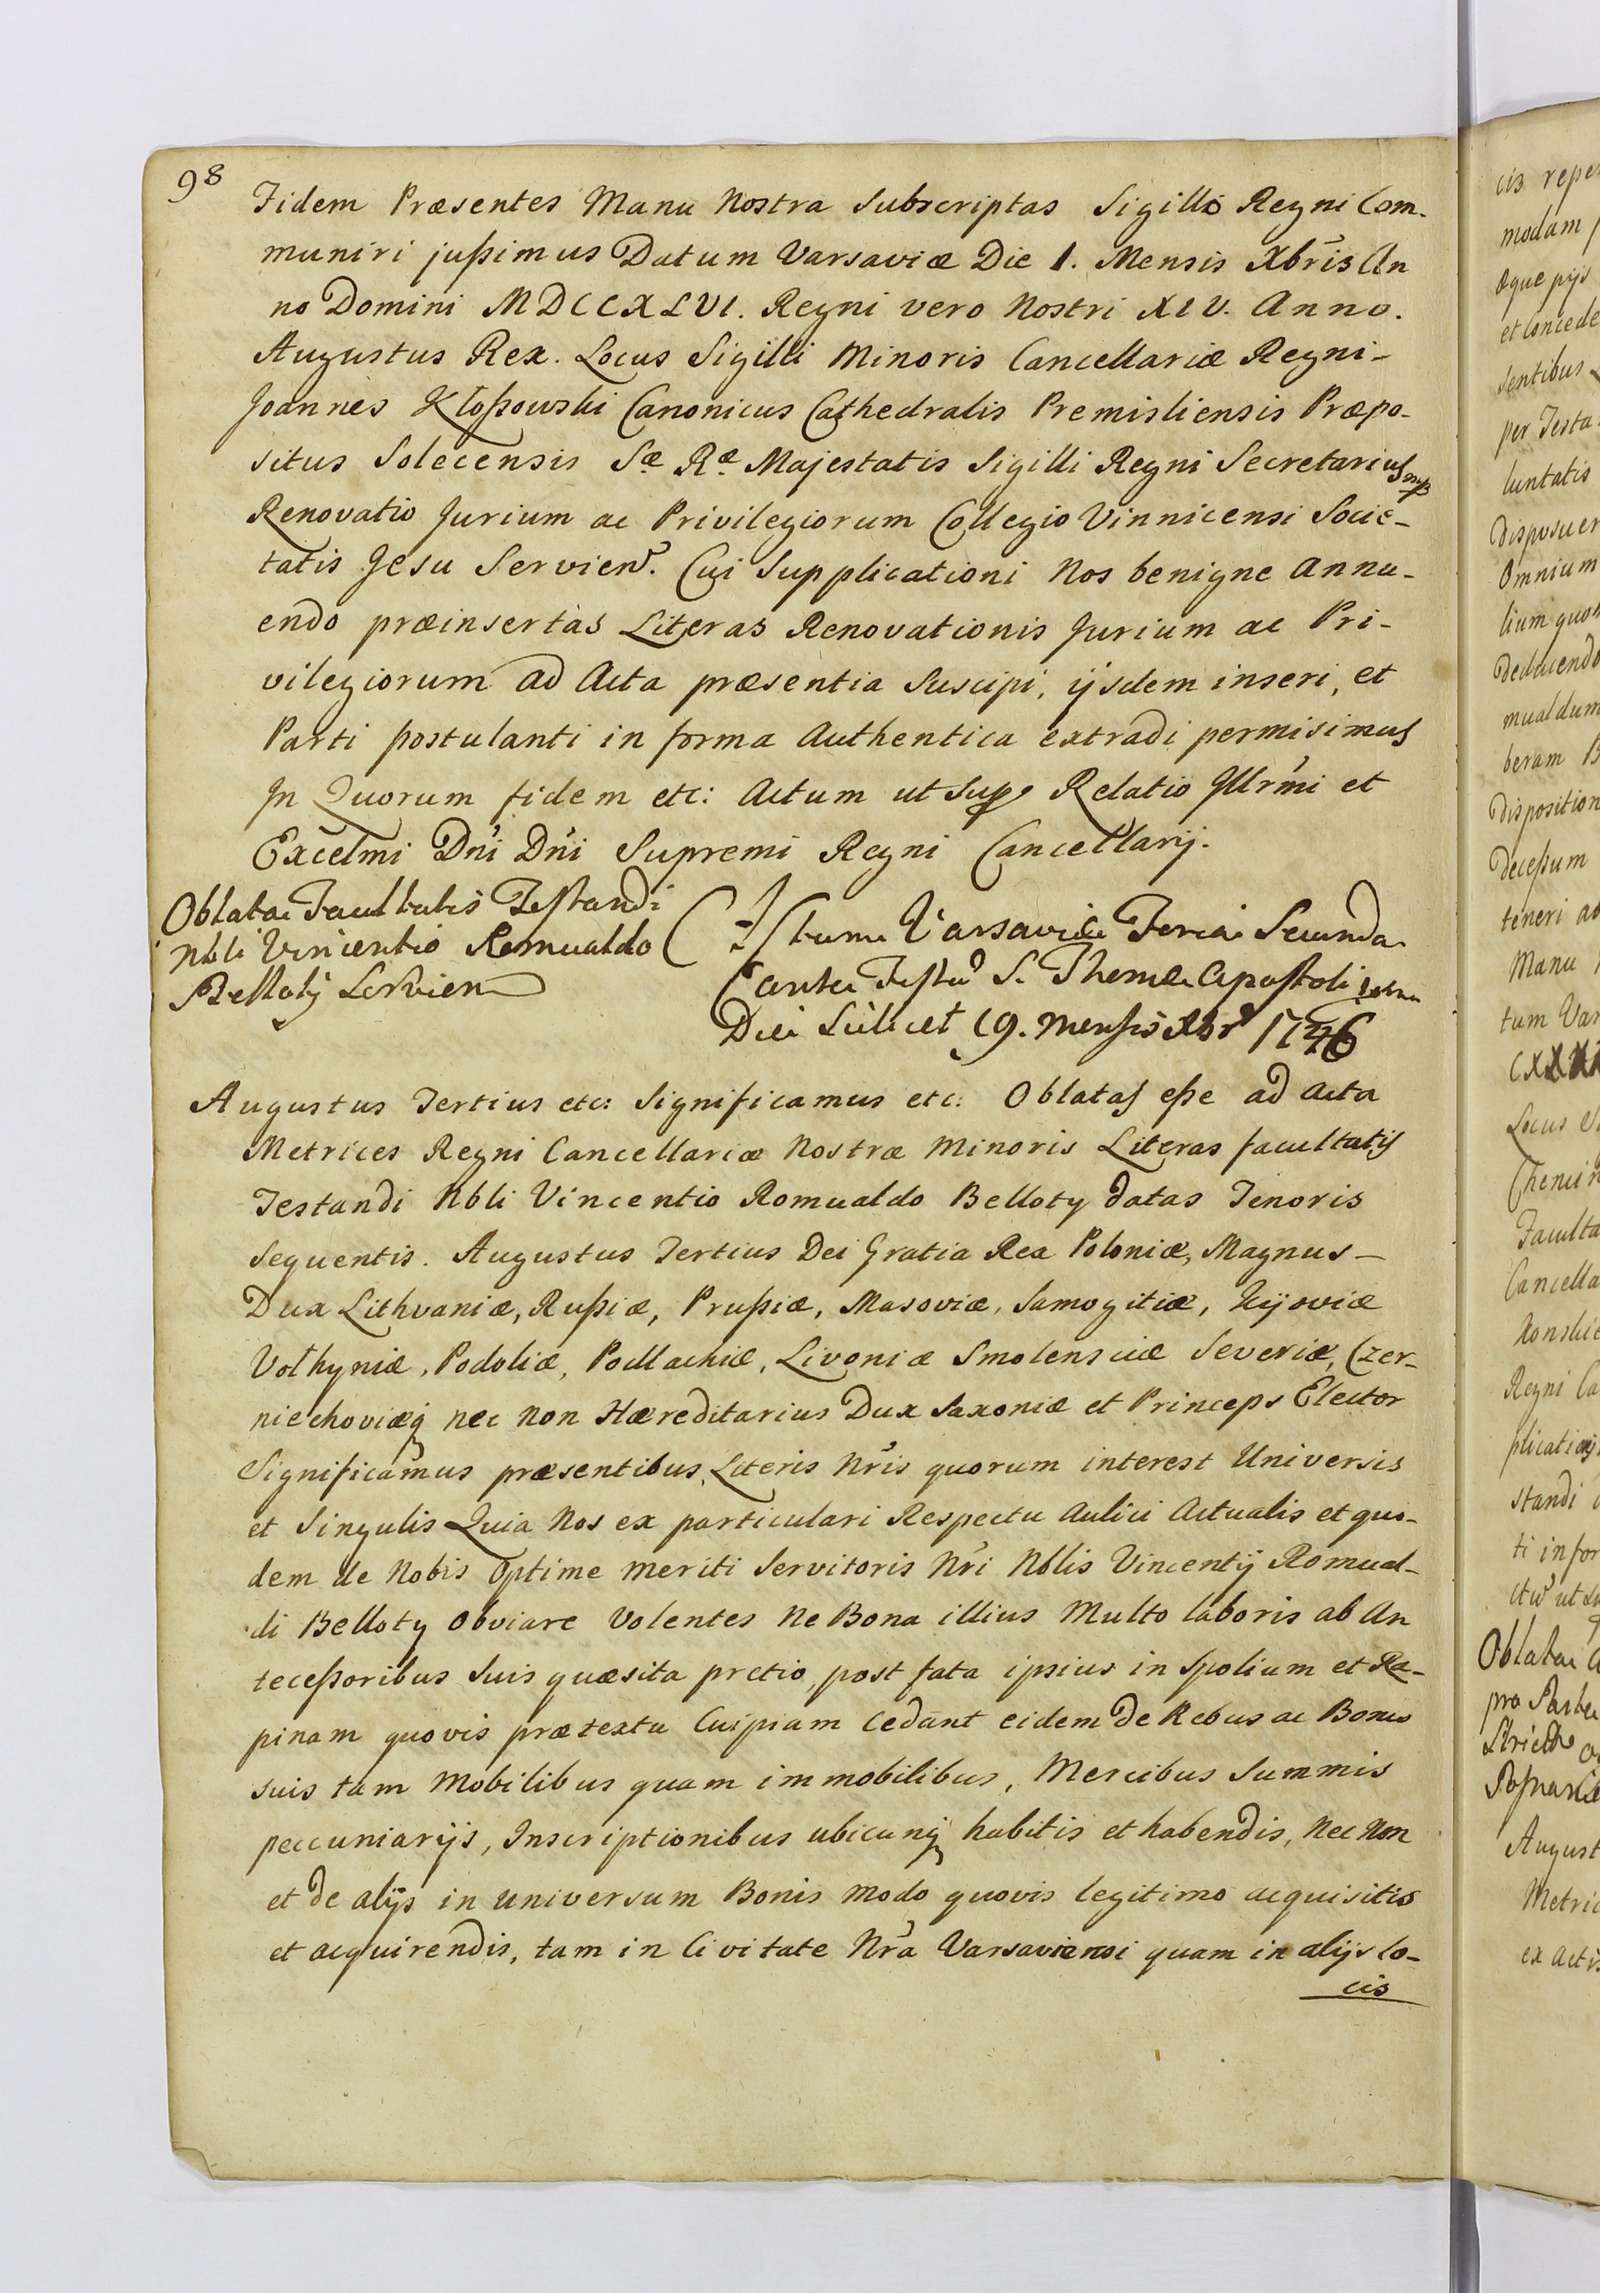 98
Fidem Præsentes Manu Nostra Subscriptas Sigillo Regni Com-
muniri jußimus Datum Varsaviæ Die 1. Mensis Xbris An
no Domini MDCCXLVI. Regni vero Nostri XIV. Anno.
Augustus Rex. Locus Sigilli Minoris Cancellariæ Regni-
Joannes Kłoßowski Canonicus Cathedralis Premisliensis Præpo-
situs Solecensis Sæ Ræ Majestatis Sigilli Regni Secretarius mp
Renovatio Jurium ac Privilegiorum Collegio Vinnicensi Socie-
tatis Jesu Servien. Cui Supplicationi Nos benigne Annu-
endo præinsertas Literas Renovationis Jurium ac Pri-
vilegiorum ad Acta præsentia Suscipi, ijsdem inseri, et
Parti postulanti in forma Authentica extradi permisimus
In Quorum fidem etc: Actum ut Sup Relatio Illrmi et
Excelmi Dni Dni Supremi Regni Cancellarij.
Oblata Facultatis Testandi
Nbli Vincentio Romualdo
Belloty Servien
Actum Varsaviæ Feria Secunda
ante Festu S. Thomæ Apostoli
Die Scilicet 19. Mensis Xbr 1746
Augustus Tertius etc: Significamus etc: Oblatas eße ad Acta
Metrices Regni Cancellariæ Nostræ Minoris Literas facultatis
Testandi Nbli Vincentio Romualdo Belloty datas Tenoris
Sequentis. Augustus Tertius Dei Gratia Rex Poloniæ, Magnus-
Dux Lithvaniæ, Rußiæ, Prußiæ, Masoviæ, Samogitiæ, Kijoviæ
Volhyniæ, Podoliæ, Podlachiæ, Livoniæ Smolensciæ Severiæ, Czer-
niechoviæq nec non Hæreditarius Dux Saxoniæ et Princeps Elector
Significamus præsentibus Literis Nris quorum interest Universis
et Singulis Quia Nos ex particulari Respectu Aulici Actualis et quo-
dem de Nobis Optime meriti Servitoris Nri Nblis Vincentij Romual-
di Belloty Obviare Volentes Ne Bona illius Multo laboris ab An
teceßoribus Suis quæsita pretio, post fata ipsius in Spolium et Ra-
pinam quovis prætextu Cuipiam Cedant eidem de Rebus ac Bonis
suis tam Mobilibus quam immobilibus, Mercibus Summis
peccuniarijs, Inscriptionibus ubicunq habitis et habendis, Nec Non
et de alijs in universum Bonis modo quovis legitimo acquisitis
et acquirendis, tam in Civitate Nra Varsaviensi quam in alijs lo-
cis